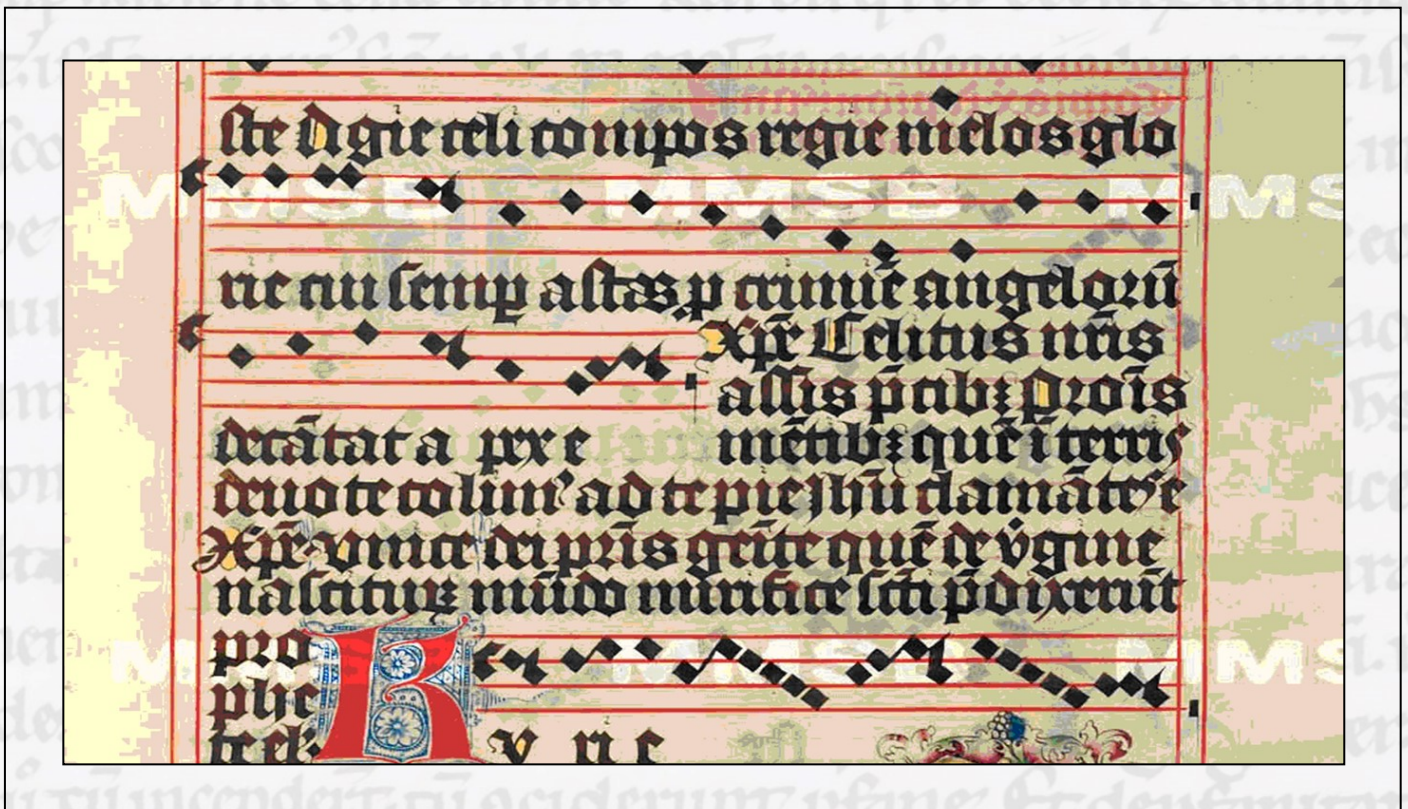 ste Agie celi compos regie melos glo
MMSB MMSB MMS
rie cui semp astãs p angelorũ
Xp̃e Celitus nr̃is
assis p̃cibꝫ Pronis
decãtat a pex e mẽtibꝫ quẽ ĩ terris
deuote colim᾽ ad te pie Jhũ clamãtes e
Xp̃e vnice dei pr̃is genite quẽ de v̓gine
nascituꝝ mũdo mirifice scti p̃dixerũt
pro
phe
MMSB MMSB MMS
te el᾽ K y ri e